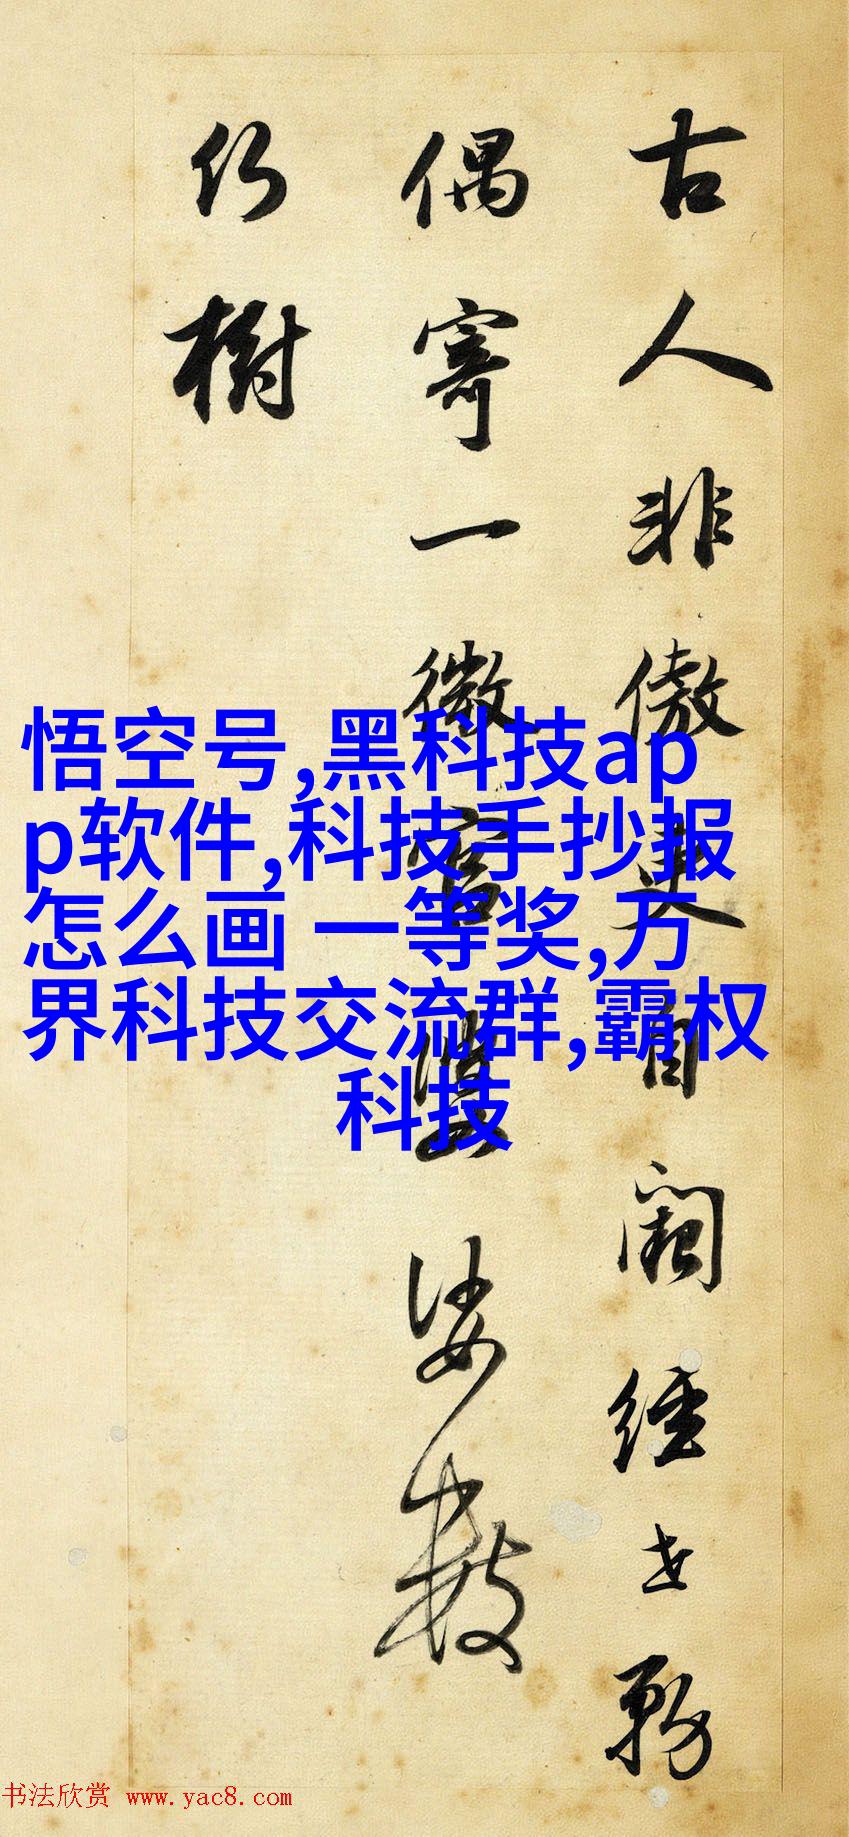 古人非傲吏自阙经世务
偶寄一微官婆娑数
仍树
悟空号,黑科技ap
p软件,科技手抄报
怎么画 一等奖,万
界科技交流群,霸权
科技
书法欣赏 www.yac8.com